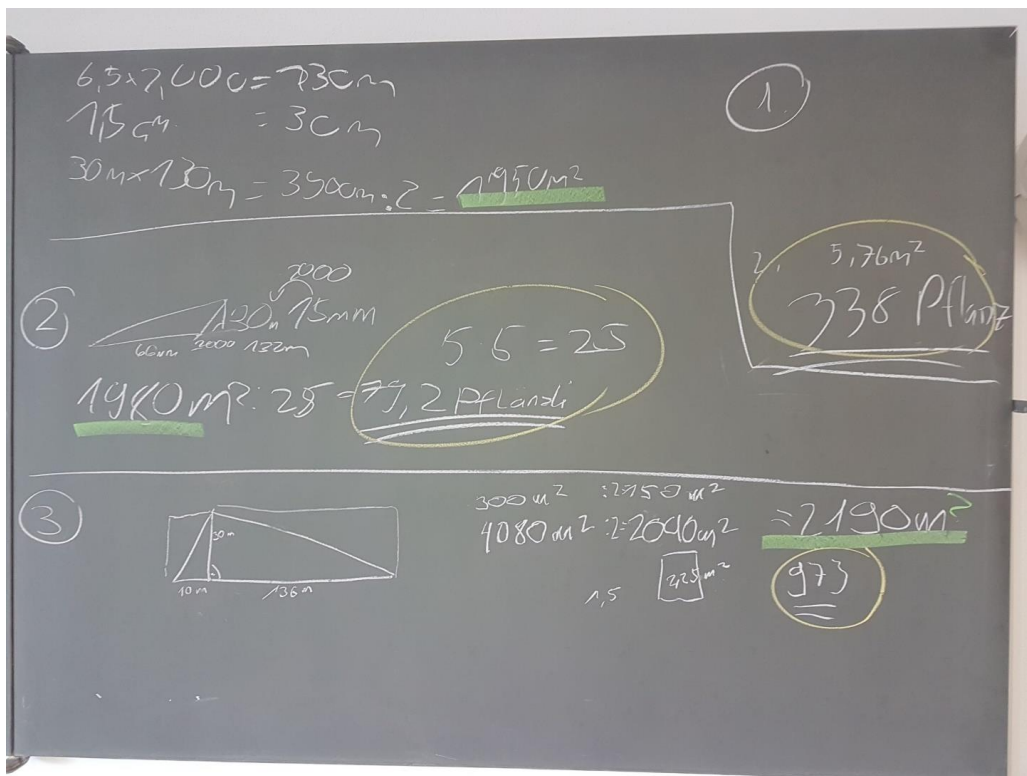 6,5x2,000=130m
1,5cm = 30m
30m×130m = 3900m:2 = 1'950m²
1.
2. 5,76m²
338 Pflanz
2
2000
130m 15mm
66mm 2000 132m
5·5=25
1980m²:25=79,2 Pflanzli
3
30m
10m 136m
300m² :2=150m²
4080m²:2=2040m² =2190m²
1,5 2,25m² 973